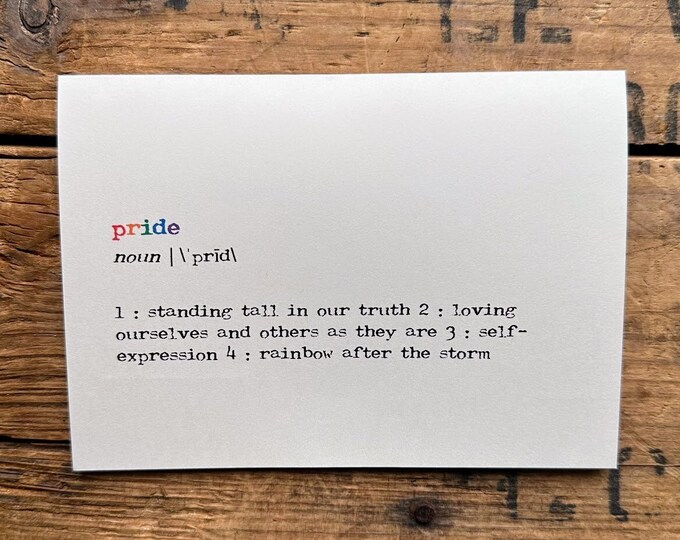 pride
noun | \ˈprīd\
1 : standing tall in our truth 2 : loving
ourselves and others as they are 3 : self-
expression 4 : rainbow after the storm